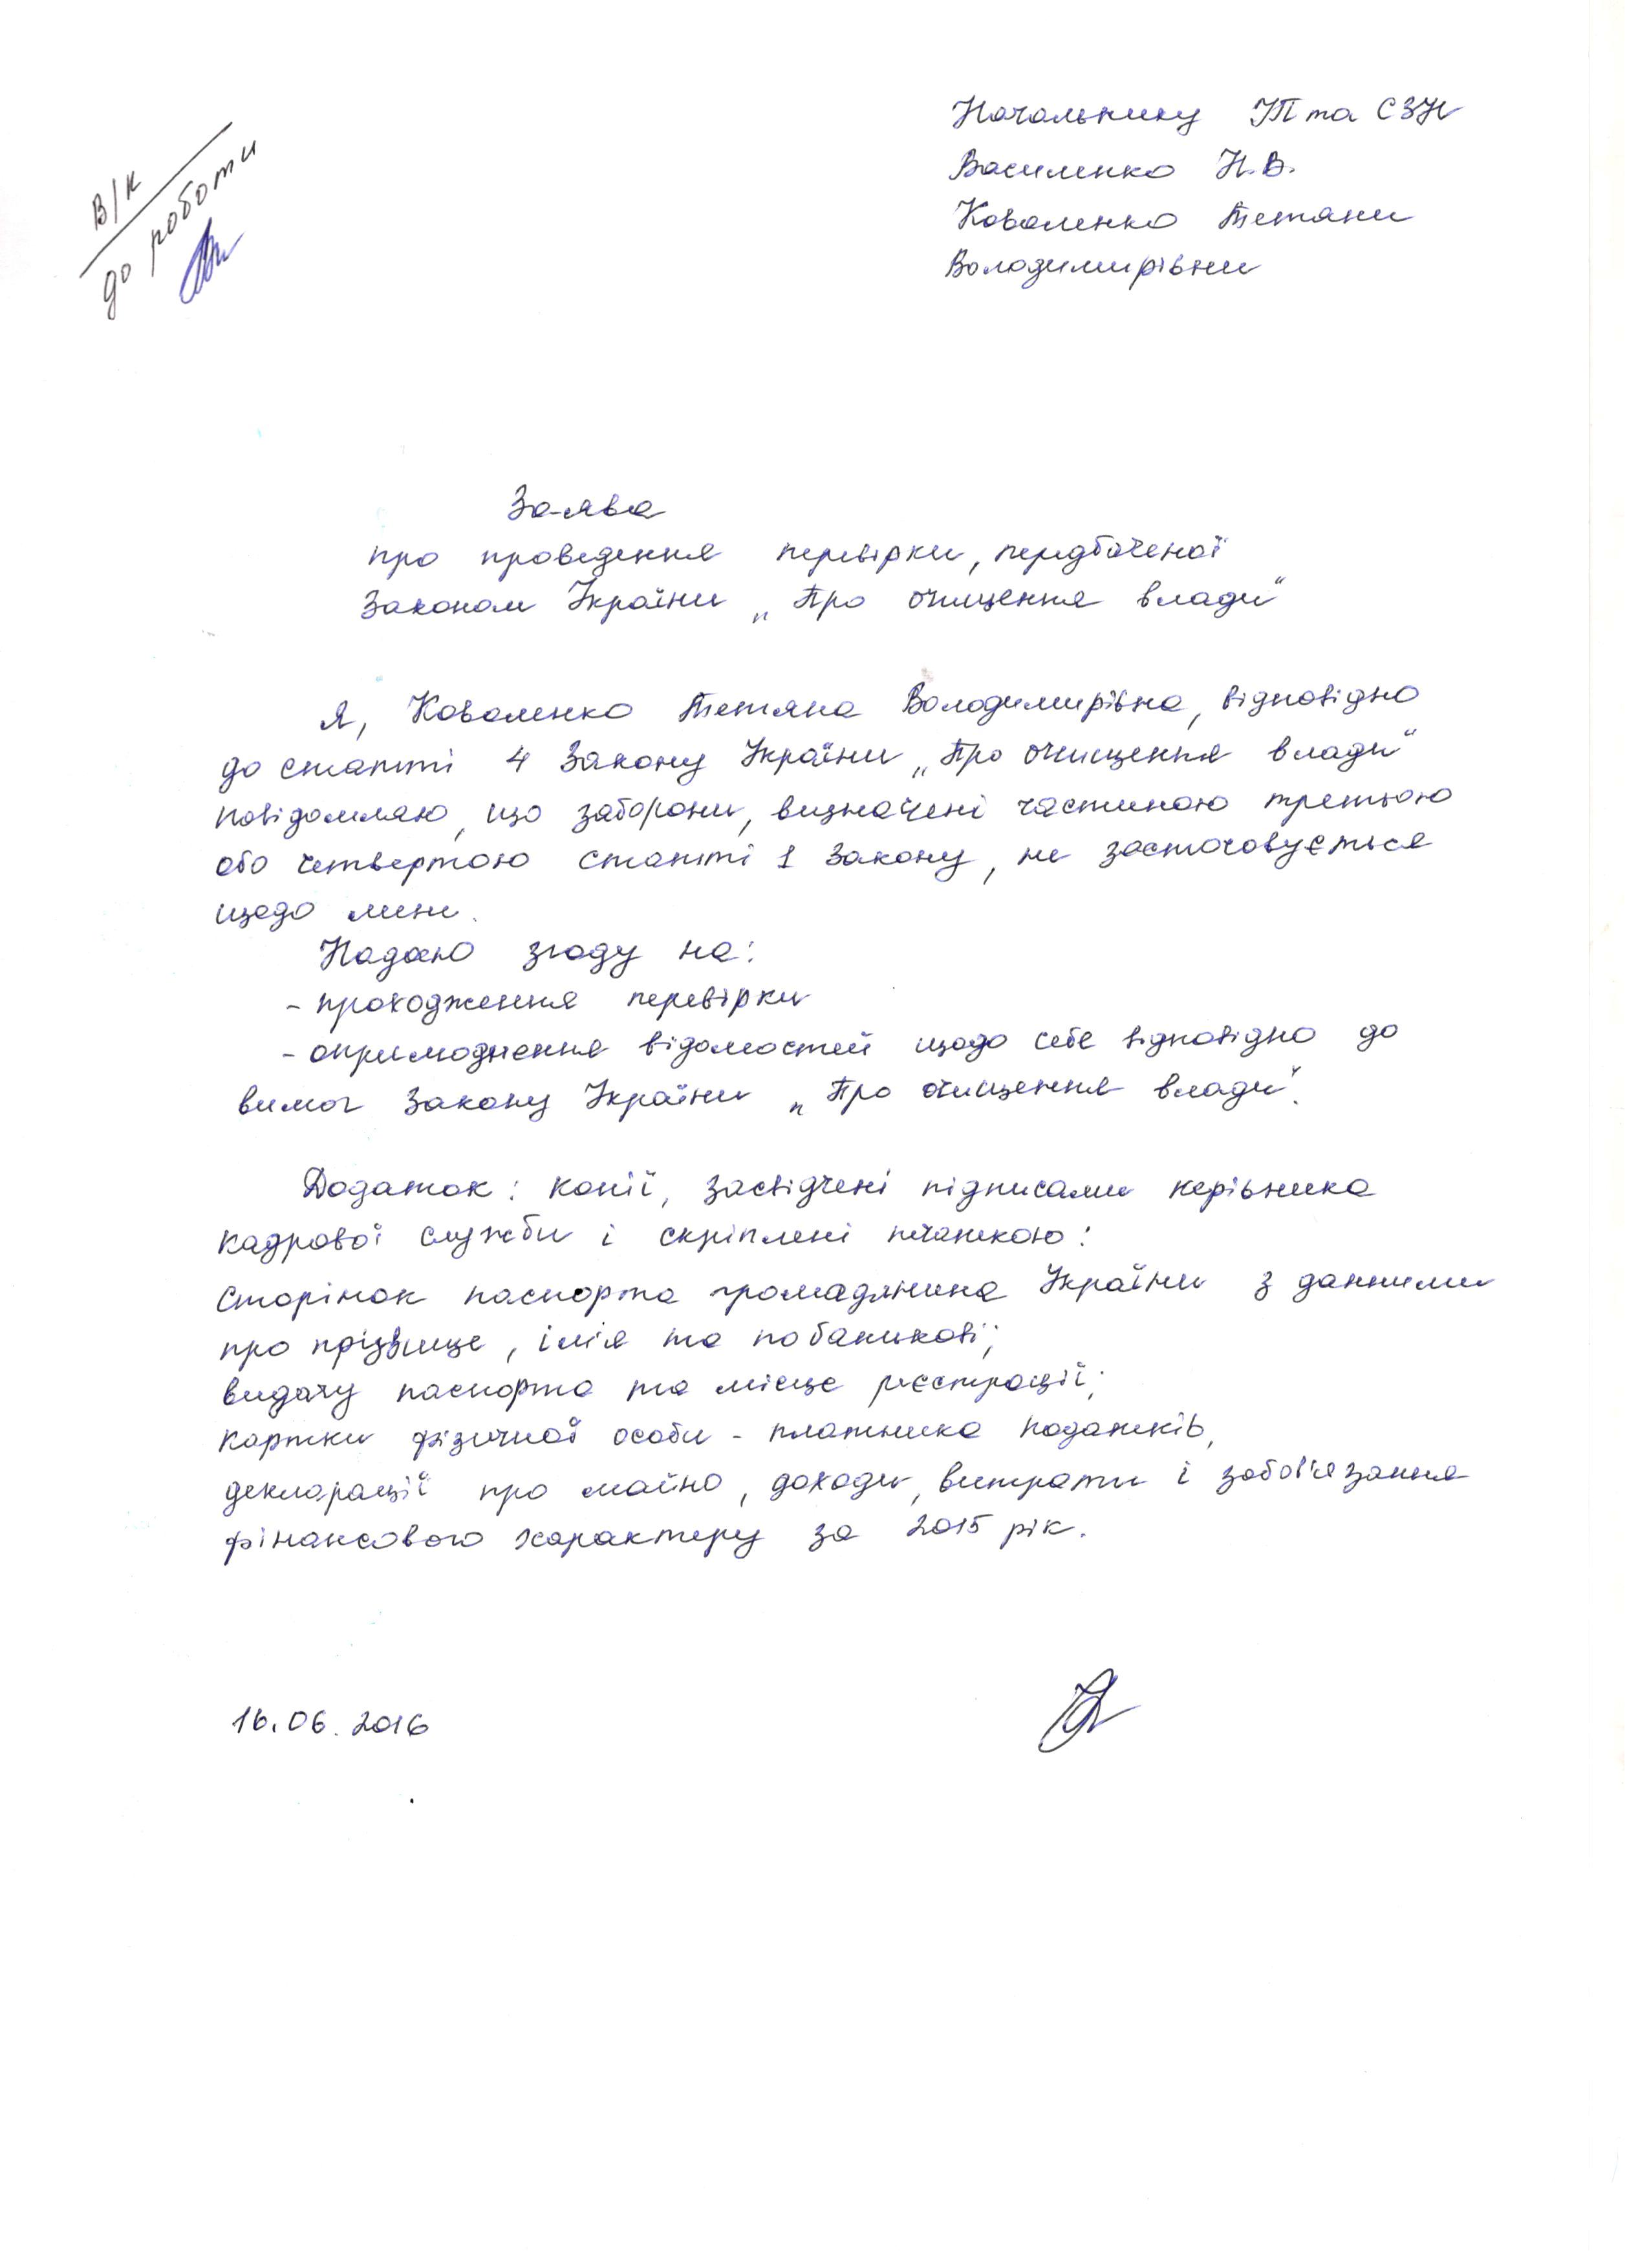 В/к
до роботи
Начальнику УП та СЗН
Василенко Н.В.
Коваленко Тетяни
Володимирівни
Заява
про проведення перевірки, передбаченої
Законом України „Про очищення влади"
Я, Коваленко Тетяна Володимирівна, відповідно
до статті 4 Закону України „Про очищення влади"
повідомляю, що заборони, визначені частиною третьою
або четвертою статті 1 Закону, не застосовується
щодо мене.
Надаю згоду на:
- проходження перевірки
- оприлюднення відомостей щодо себе відповідно до
вимог Закону України „Про очищення влади".
Додаток: копії, засвідчені підписами керівника
кадрової служби і скріплені печаткою:
сторінок паспорта громадянина України з данними
про прізвище, ім'я та по батькові;
видачу паспорта та місце реєстрації;
картки фізичної особи - платника податків,
декларації про майно, доходи, витрати і зобов'язання
фінансового характеру за 2015 рік.
16.06.2016